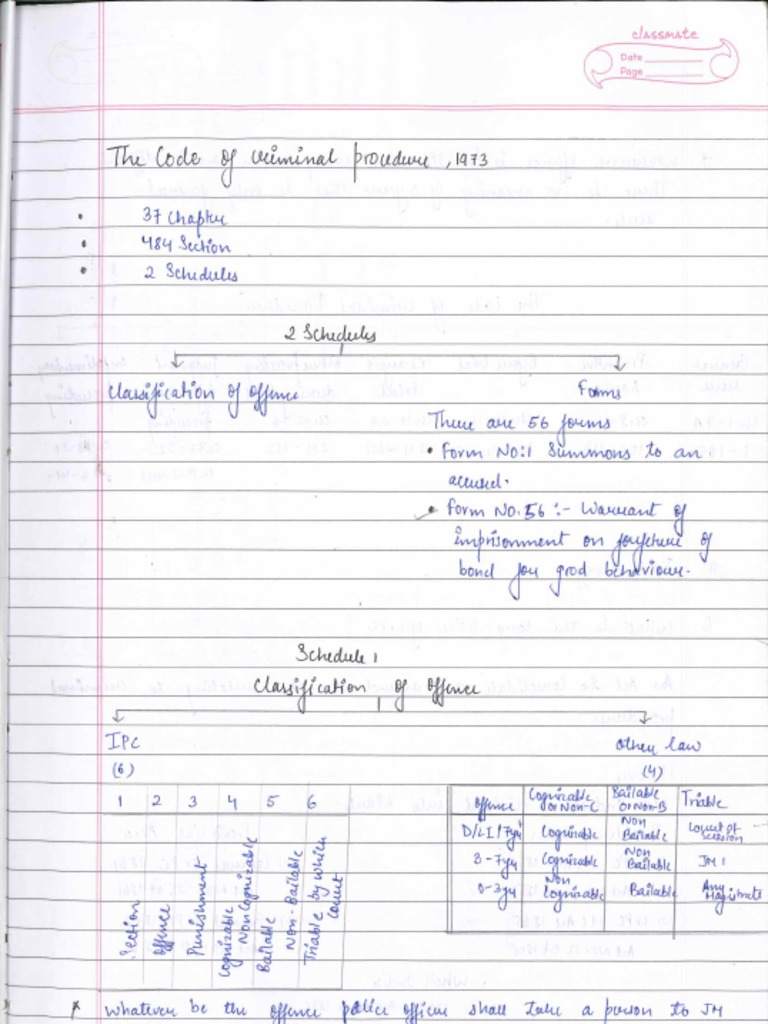 classmate
Date
Page
The Code of criminal procedure, 1973
• 37 Chapter
• 484 Section
• 2 Schedules
2 Schedules
Classification of offence
Forms
There are 56 forms
• Form No:1 Summons to an
accused.
• Form No.56 :- Warrant of
imprisonment on forfeture of
bond for good behaviour.
Schedule 1
Classification of offence
IPC
(6)
1 2 3 4 5 6
Section
Offence
Punishment
Cognizable
- Non Cognizable
Bailable
Non-Bailable
Triable by which
Court
Other law
(4)
Offence Cognizable or Non-C Bailable or Non-B Triable
D/LI/7yr Cognizable Non Bailable Court of session
3-7yr Cognizable Non Bailable JM1
0-3yr Non Cognizable Bailable Any Magistrate
* Whatever be the offence police officer shall take a person to JM